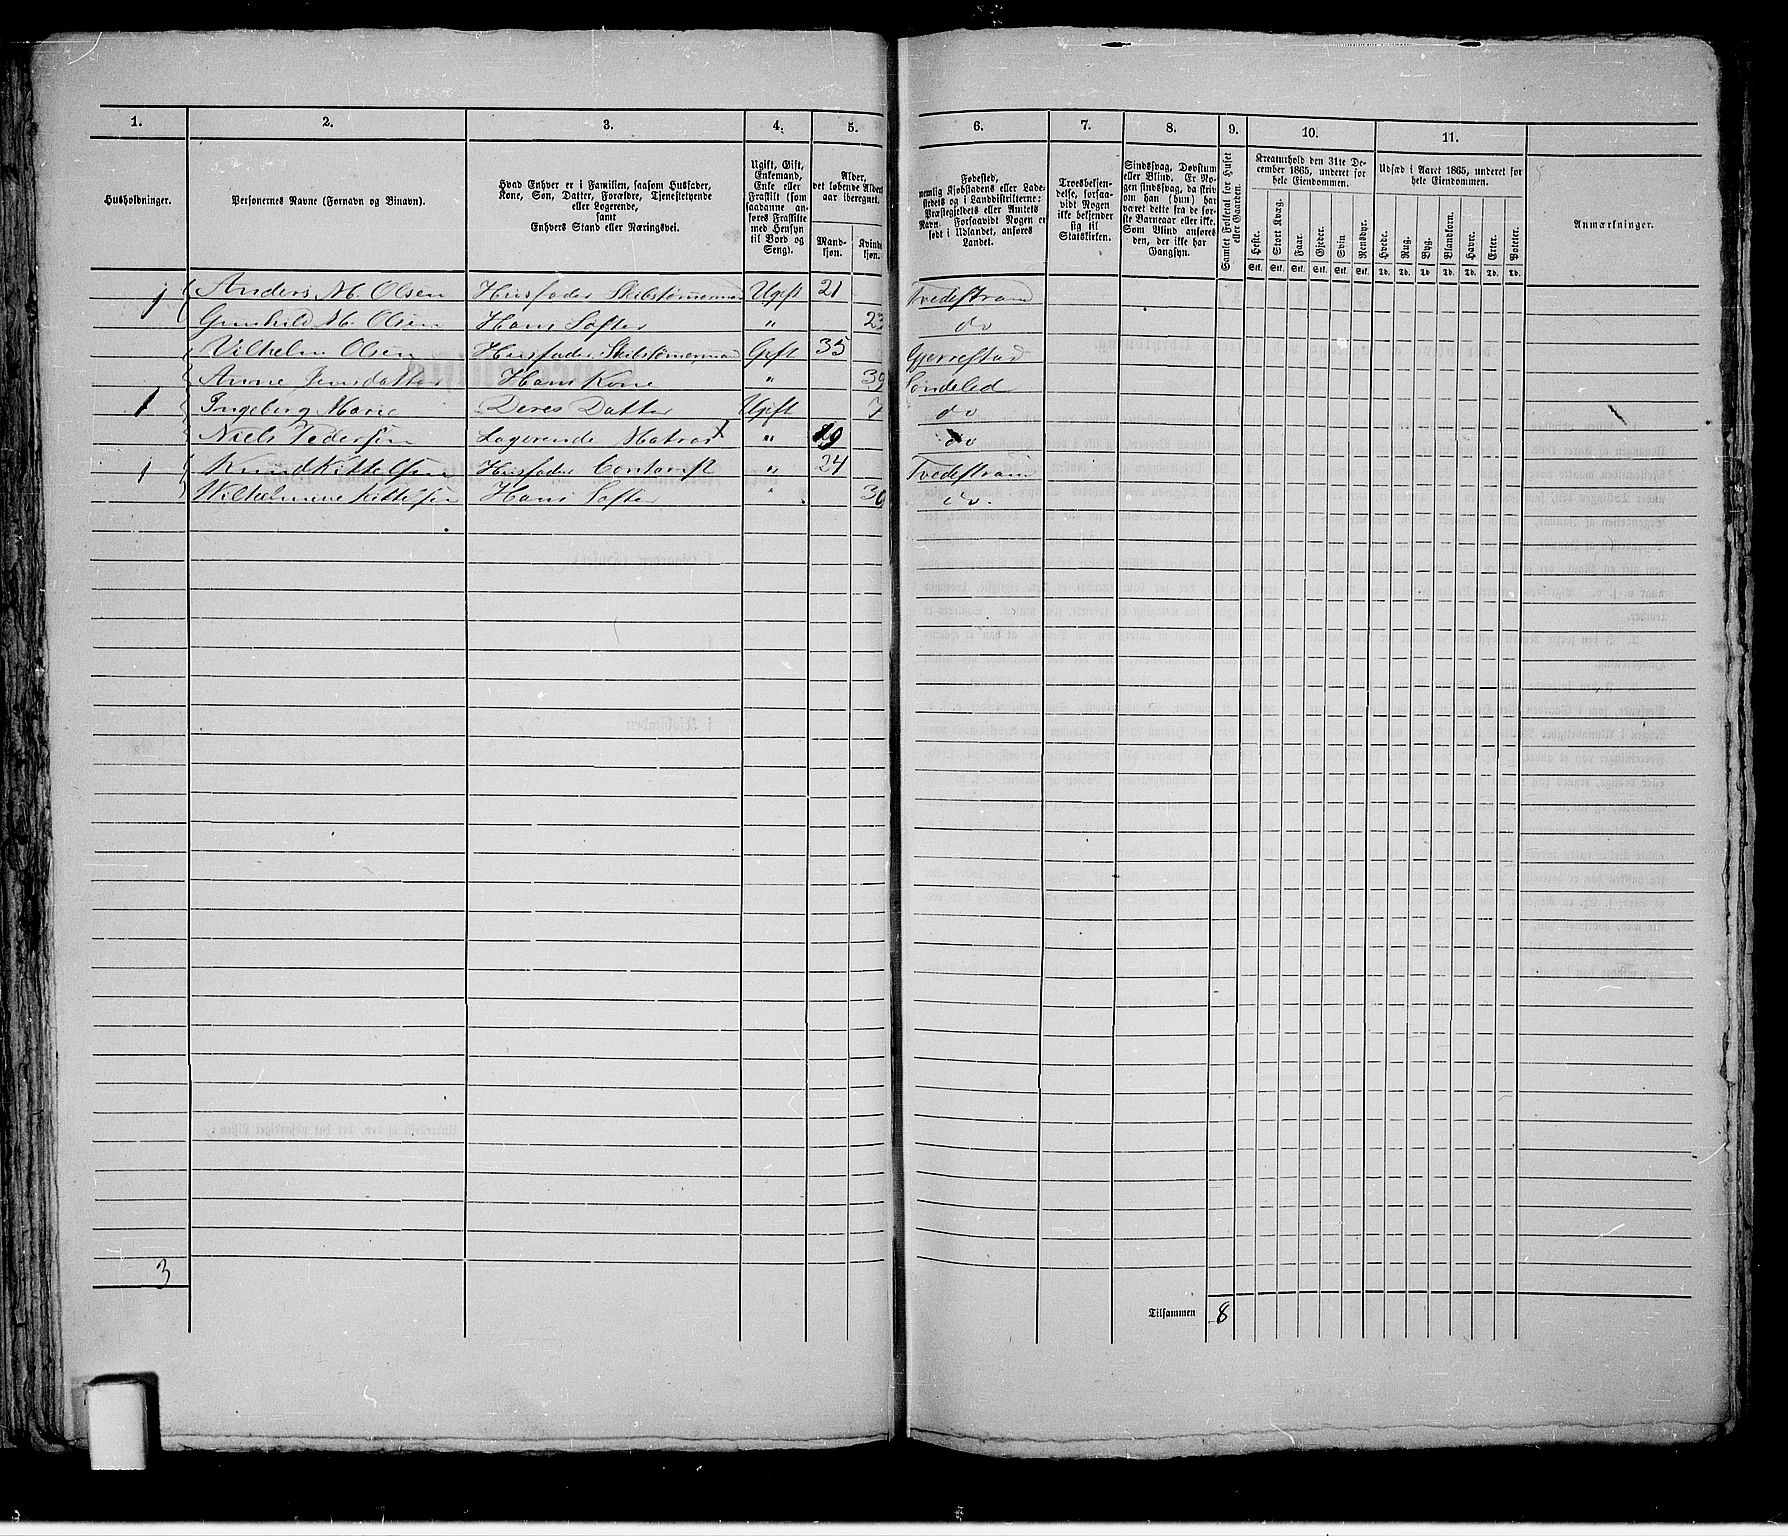 1. 2. 3. 4. 5. 6. 7. 8. 9. 10. 11.
Husholdninger.
Personernes Navne (Fornavn og Binavn).
Hvad Enhver er i Familien, saasom Husfader,
Kone, Søn, Datter, Forældre, Tjenestetyende
eller Logerende,
samt
Enhvers Stand eller Næringsvei.
Ugift, Gift,
Enkemand,
Enke eller
Fraskilt (som
saadanne an-
føres Fraskilte
med Hensyn
til Bord og
Seng).
Alder,
det løbende Alders-
aar iberegnet.
Mand-
kjøn.
Kvinde-
kjøn.
Fødested,
nemlig Kjøbstadens eller Lade-
stedets og i Landdistrikterne:
Præstegjeldets eller Amtets
Navn. Forsaavidt Nogen er
født i Udlandet, anføres
Landet.
Troesbekjen-
delse, forsaa-
vidt Nogen
ikke bekjender
sig til
Statskirken.
Sindssvag, Døvstum
eller Blind. Er No-
gen sindssvag, da skriv
om han (hun) har
været dette fra de før-
ste Barneaar eller ikke.
Som Blind anføres
den, der ikke har
Gangsyn.
Samlet Folketal for Huset
eller Gaarden.
Kreaturhold den 31te De-
cember 1865, underet for
hele Eiendommen.
Heste. Stort Kvæg. Faar. Gjeder. Svin. Rensdyr.
Stk. Stk. Stk. Stk. Stk. Stk.
Udsæd i Aaret 1865, underet for
hele Eiendommen.
Hvede. Rug. Byg. Blandkorn. Havre. Erter. Poteter.
Td. Td. Td. Td. Td. Td. Td.
Anmærkninger.
1 Anders M. Olsen Husfader Skibstømmermand Ugift 21 Tvedestrand
Gunhild M. Olsen Hans Søster " 23 do
Vilhelm Olsen Husfader Skibstømermand Gift 35 Gjerrestad
Anne Jensdatter Hans Kone " 39 Søndeled
1 Ingeberg Marie Deres Datter Ugift 7 do
Niels Pedersen Logerende Matros " 19 do
1 Knud Kittelsen Husfader Contorist " 24 Tvedestrand
Wilhelmine Kittelsen Hans Søster " 30 do.
3
Tilsammen 8